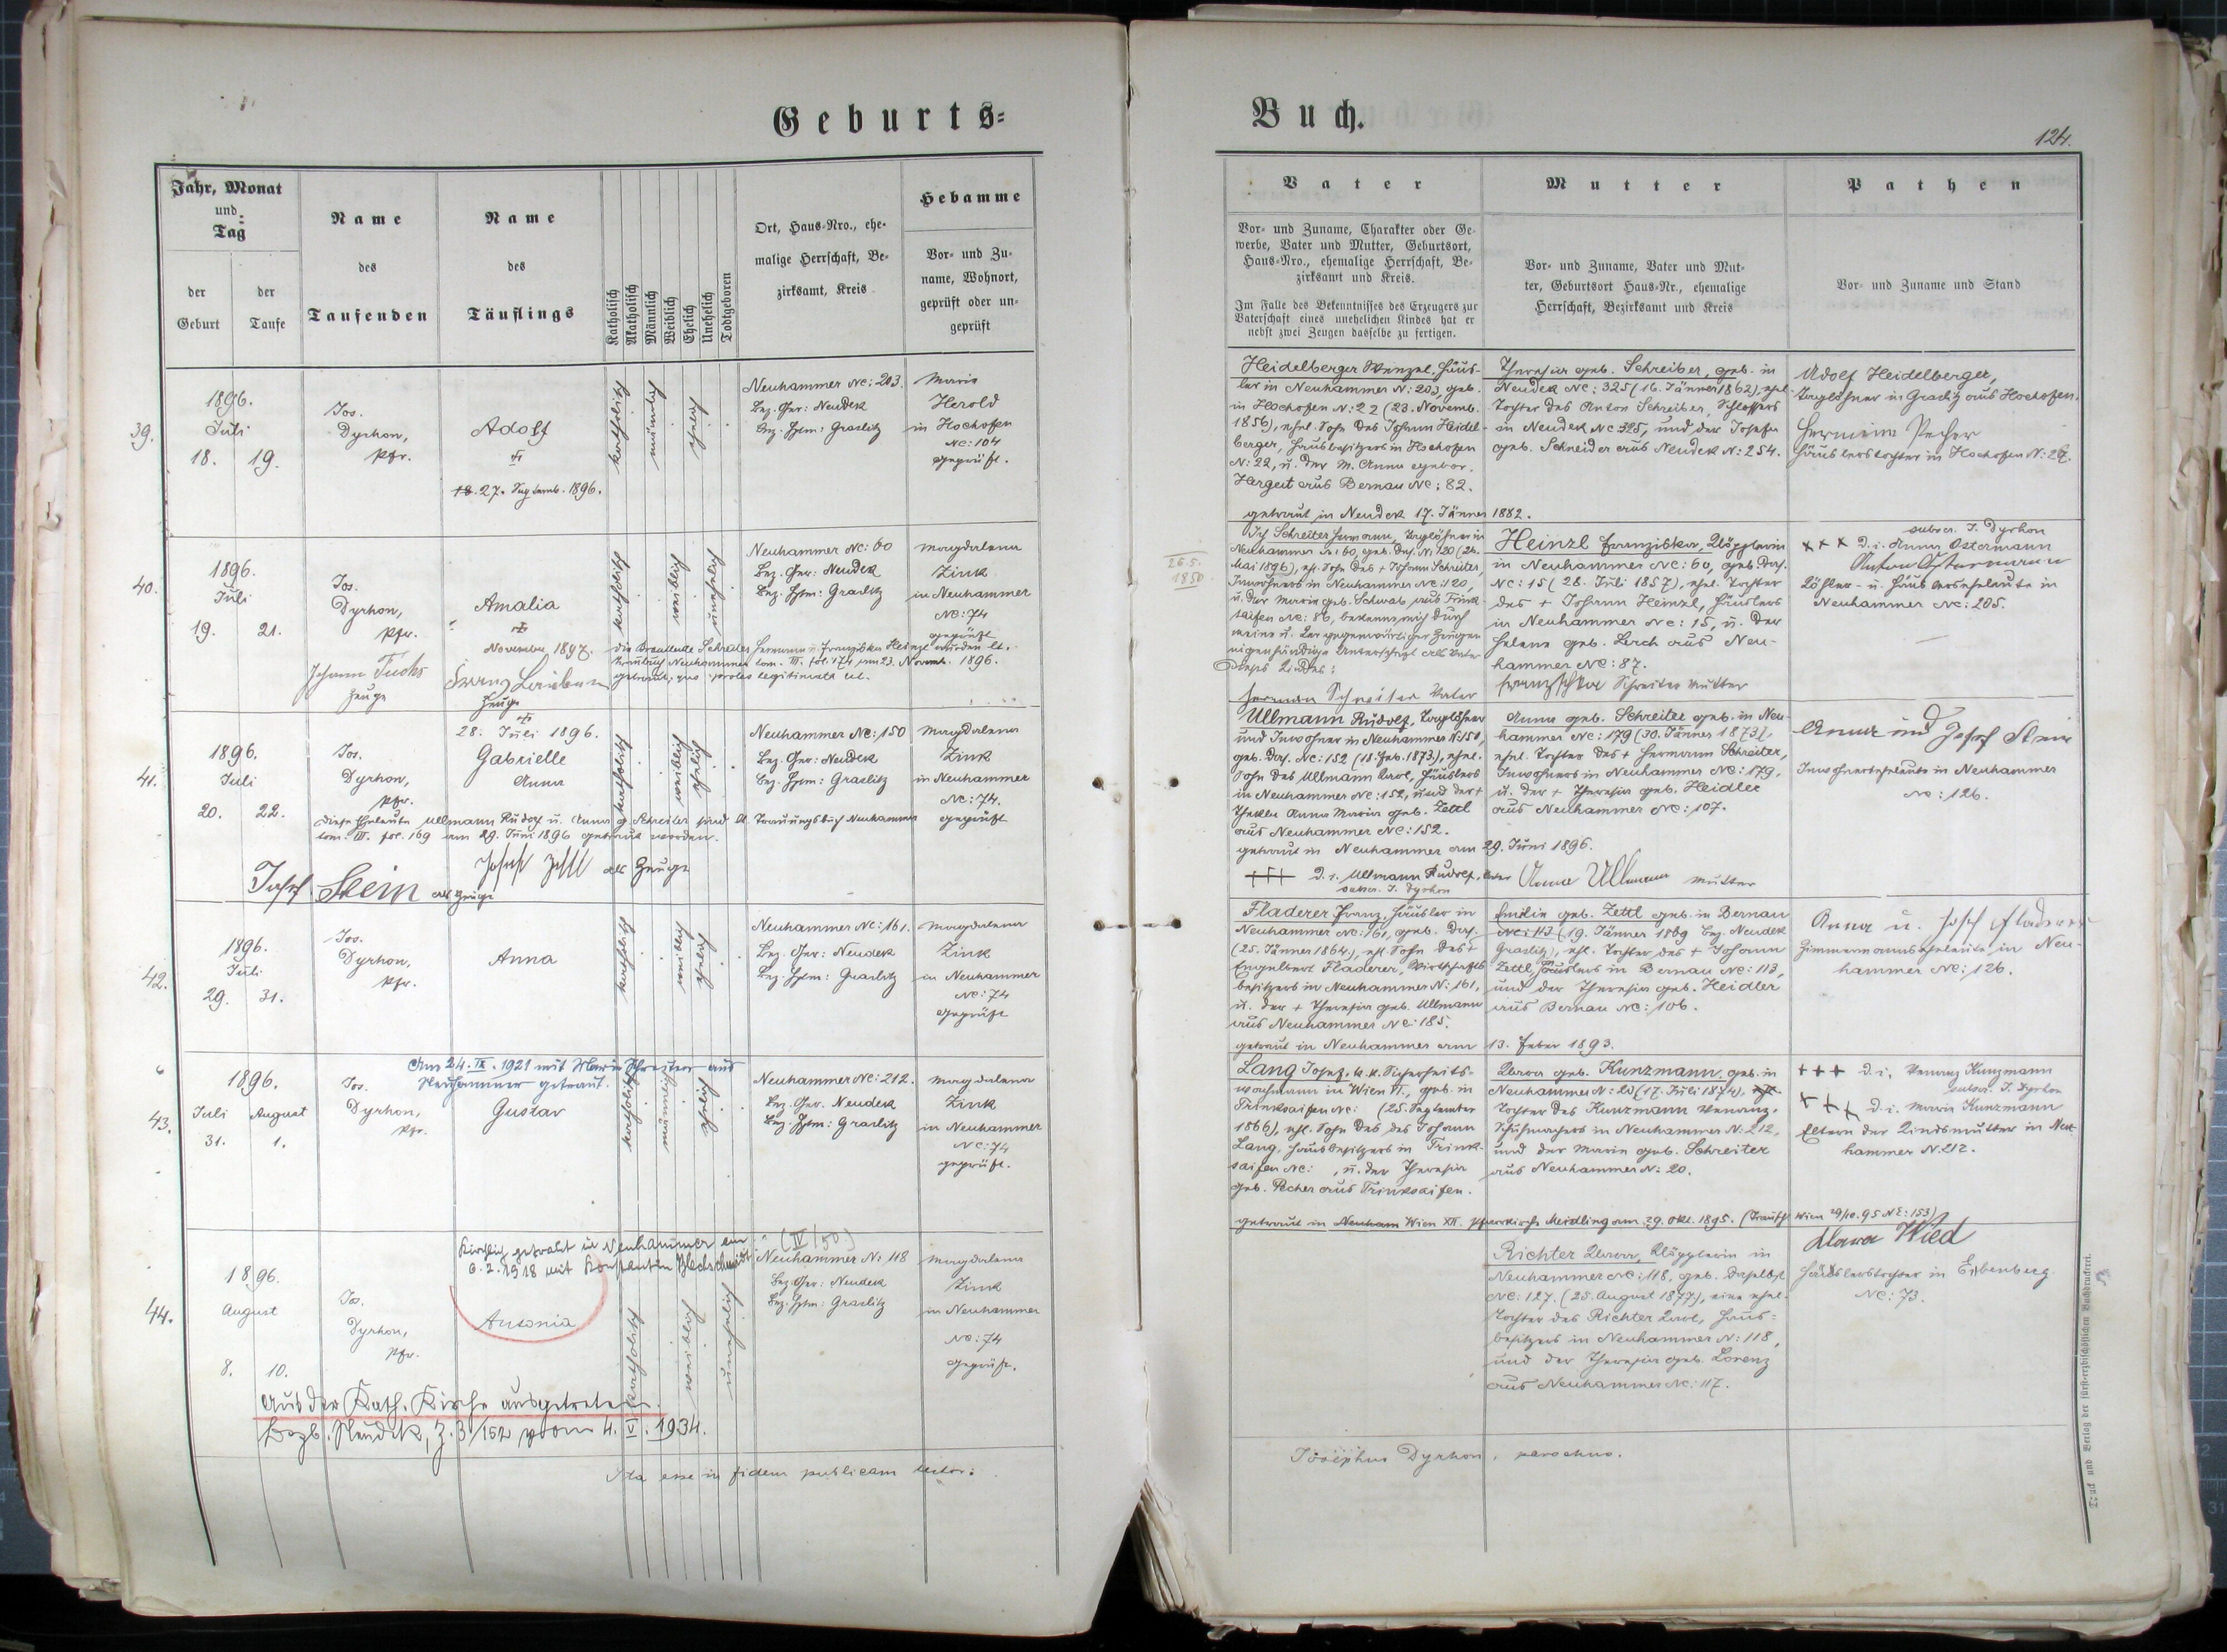 Geburts=
Jahr, Monat
und
Tag
der
Geburt
der
Taufe
Name
des
Taufenden
Name
des
Täuflings
Katholisch
Akatholisch
Männlich
Weiblich
Ehelich
Unehelich
Todtgeboren
Ort, Haus-Nro., ehe-
malige Herrschaft, Be-
zirksamt, Kreis
Hebamme
Vor- und Zu-
name, Wohnort,
geprüft oder un-
geprüft
39.
1896.
Juli
18. 19.
Jos.
Dyrhon,
Pfr.
Adolf
†
18. 27. Septemb. 1896.
katholisch
männlich
ehelich
Neuhammer Nc: 203.
Bez. Ger: Neudek
Bez. Hptm: Graslitz
Maria
Herold
in Hochofen
Nc: 104
geprüft.
40.
1896.
Juli
19. 21.
Jos.
Dyrhon,
Pfr.
Amalia
†
November 1897.
katholisch
weiblich
unehelich
Neuhammer Nc: 60
Bez. Ger: Neudek
Bez. Hptm: Graslitz
Magdalena
Zink
in Neuhammer
Nc: 74
geprüft
die Brautleute Schreiter Hermann u. Franziska Heinzl wurden lt.
Traubuch Neuhammer tom. III. fol. 174 am 23. Novemb. 1896.
getraut, quo proles legitimata est.
Johann Fuchs
Zeuge
Franz
Zeuge
41.
1896.
Juli
20. 22.
Jos.
Dyrhon,
Pfr.
†
28. Juli 1896.
Gabrielle
Anna
katholisch
weiblich
ehelich
Neuhammer Nc: 150
Bez. Ger: Neudek
Bez. Hptm: Graslitz
Magdalena
Zink
in Neuhammer
Nc: 74.
geprüft
diese Eheleute Ullmann Rudolf u. Anna g. Schreiter sind lt. Trauungsbuch Neuhammer
tom. III. fol. 169 am 29. Juni 1896 getraut worden.
Josef Zettl als Zeuge
Josef Stein als Zeuge
42.
1896.
Juli
29. 31.
Jos.
Dyrhon,
Pfr.
Anna
katholisch
weiblich
ehelich
Neuhammer Nc: 161.
Bez. Ger: Neudek
Bez. Hptm: Graslitz
Magdalena
Zink
in Neuhammer
Nc: 74
geprüft
43.
Am 24. IX. 1921 mit Marie Schreiter aus
Neuhammer getraut.
1896.
Juli August
31. 1.
Jos.
Dyrhon,
Pfr.
Gustav
katholisch
männlich
ehelich
Neuhammer Nc: 212.
Bez. Ger. Neudek
Bez. Hptm: Graslitz
Magdalena
Zink
in Neuhammer
Nc: 74
geprüft.
44.
Kirchlich getraut in Neuhammer am
6. 2. 1918 mit Konstantin Blechschmidt
(IV/50.)
1896.
August
8. 10.
Jos.
Dyrhon,
Pfr.
Antonia
katholisch
weiblich
unehelich
Neuhammer N: 118
Bez. Ger: Neudek
Bez. Hptm: Graslitz
Magdalena
Zink
in Neuhammer
Nc: 74
geprüft.
Aus der Kath. Kirche ausgetreten.
Bezb. Neudek, Z. 3/152 vom 4. VI. 1934.
Ita esse in fidem publicam testor:
Buch.
124.
Vater
Vor- und Zuname, Charakter oder Ge-
werbe, Vater und Mutter, Geburtsort,
Haus-Nro., ehemalige Herrschaft, Be-
zirksamt und Kreis.
Im Falle des Bekenntnisses des Erzeugers zur
Vaterschaft eines unehelichen Kindes hat er
nebst zwei Zeugen dasselbe zu fertigen.
Mutter
Vor- und Zuname, Vater und Mut-
ter, Geburtsort Haus-Nr., ehemalige
Herrschaft, Bezirksamt und Kreis
Pathen
Vor- und Zuname und Stand
Heidelberger Wenzel, Häus-
ler in Neuhammer N: 203, geb.
in Hochofen N: 22 (23. Novemb.
1856), ehel. Sohn des Johann Heidel-
berger, Hausbesitzers in Hochofen
N: 22, u. der M. Anna gebor.
Hargeit aus Bernau Nc: 82.
Theresia geb. Schreiber, geb. in
Neudek Nc: 325 (16. Jänner 1862), ehel.
Tochter des Anton Schreiber, Schlossers
in Neudek Nc 325, und der Josefa
geb. Schneider aus Neudek N: 254.
Adolf Heidelberger,
Taglöhner in Graslitz aus Hochofen.
Hermine Pecher
Häuslerstochter in Hochofen N: 27.
getraut in Neudek 17. Jänner 1882.
26.5.
1850
Ich Schreiter Hermann, Taglöhner in
Neuhammer Nc: 60, geb. das. N: 120 (26.
Mai 1896), ehl. Sohn des † Johann Schreiter,
Inwohners in Neuhammer Nc: 120,
u. der Marie geb. Schwab aus Trink-
saifen Nc: 86, bekenne mich durch
meine u. der gegenwärtigen Zeugen
eigenhändige Unterschrift als Vater
dieses Kindes:
Herman Schreiter Vater
Heinzl Franziska, Klöpplerin
in Neuhammer Nc: 60, geb. das.
Nc: 15 (28. Juli 1857), ehel. Tochter
des † Johann Heinzl, Häuslers
in Neuhammer Nc: 15, u. der
Helene geb. Lerch aus Neu-
hammer Nc: 87.
Franziska Schreiter Mutter
subscr. J. Dyrhon
+++ d. i. Anna Ostermann
Anton Ostermann
Köhler- u. Häuslerseheleute in
Neuhammer Nc: 205.
Ullmann Rudolf, Taglöhner
und Inwohner in Neuhammer N: 150,
geb. das. Nc: 152 (18. Feb. 1873), ehel.
Sohn des Ullmann Karl, Häuslers
in Neuhammer Nc: 152, und der †
Thekla Anna Maria geb. Zettl
aus Neuhammer Nc: 152.
Anna geb. Schreiter geb. in Neu-
hammer Nc: 179 (30. Jänner 1873),
ehel. Tochter des † Hermann Schreiter,
Inwohners in Neuhammer Nc: 179,
u. der † Theresia geb. Heidler
aus Neuhammer Nc: 107.
Anna und Josef Stein
Inwohnerseheleute in Neuhammer
Nc: 126.
getraut in Neuhammer am 29. Juni 1896.
+++ d. i. Ullmann Rudolf, Vater
subscr. J. Dyrhon
Anna Ullmann Mutter
Fladerer Franz, Häusler in
Neuhammer Nc: 161, geb. das.
(25. Jänner 1864), ehl. Sohn des †
Engelbert Fladerer, Wirtschafts-
besitzers in Neuhammer N: 161,
u. der † Theresia geb. Ullmann
aus Neuhammer Nc: 185.
Emilie geb. Zettl geb. in Bernau
Nc: 113 (19. Jänner 1869 Bez. Neudek
Graslitz), ehl. Tochter des † Johann
Zettl, Häuslers in Bernau Nc: 113,
und der Theresia geb. Heidler
aus Bernau Nc: 106.
Anna u. Josef Fladerer
Zimmermannseheleute in Neu-
hammer Nc: 126.
getraut in Neuhammer am 13. Feber 1893.
Lang Josef, k. k. Sicherheits-
wachmann in Wien VI., geb. in
Trinksaifen Nc: (25. September
1866), ehl. Sohn des des Johann
Lang, Hausbesitzers in Trink-
saifen Nc: , u. der Theresia
geb. Pecher aus Trinksaifen.
Klara geb. Kunzmann, geb. in
Neuhammer N: 20 (17. Juli 1874), ehl.
Tochter des Kunzmann Venanz,
Schuhmachers in Neuhammer N: 212,
und der Marie geb. Schreiter
aus Neuhammer N: 20.
+++ d. i. Venanz Kunzmann
subscr. J. Dyrhon
+++ d. i. Maria Kunzmann
Eltern der Kindsmutter in Neu-
hammer N. 212.
getraut in Neuham Wien XII. Pfarrkirche Meidling am 29. Okt. 1895. (Trausch Wien 29/10.95 NE: 153)
Richter Klara, Klöpplerin in
Neuhammer Nc: 118, geb. daselbst
Nc: 127. (25. August 1877), eine ehel.
Tochter des Richter Karl, Haus-
besitzers in Neuhammer N: 118,
und der Theresia geb. Lorenz
aus Neuhammer Nc: 117.
Klara Wied
Häuslerstochter in Eibenberg
Nc: 73.
Josephus Dyrhon, parochus.
Druck und Verlag der fürst-erzbischöflichen Buchdruckerei.